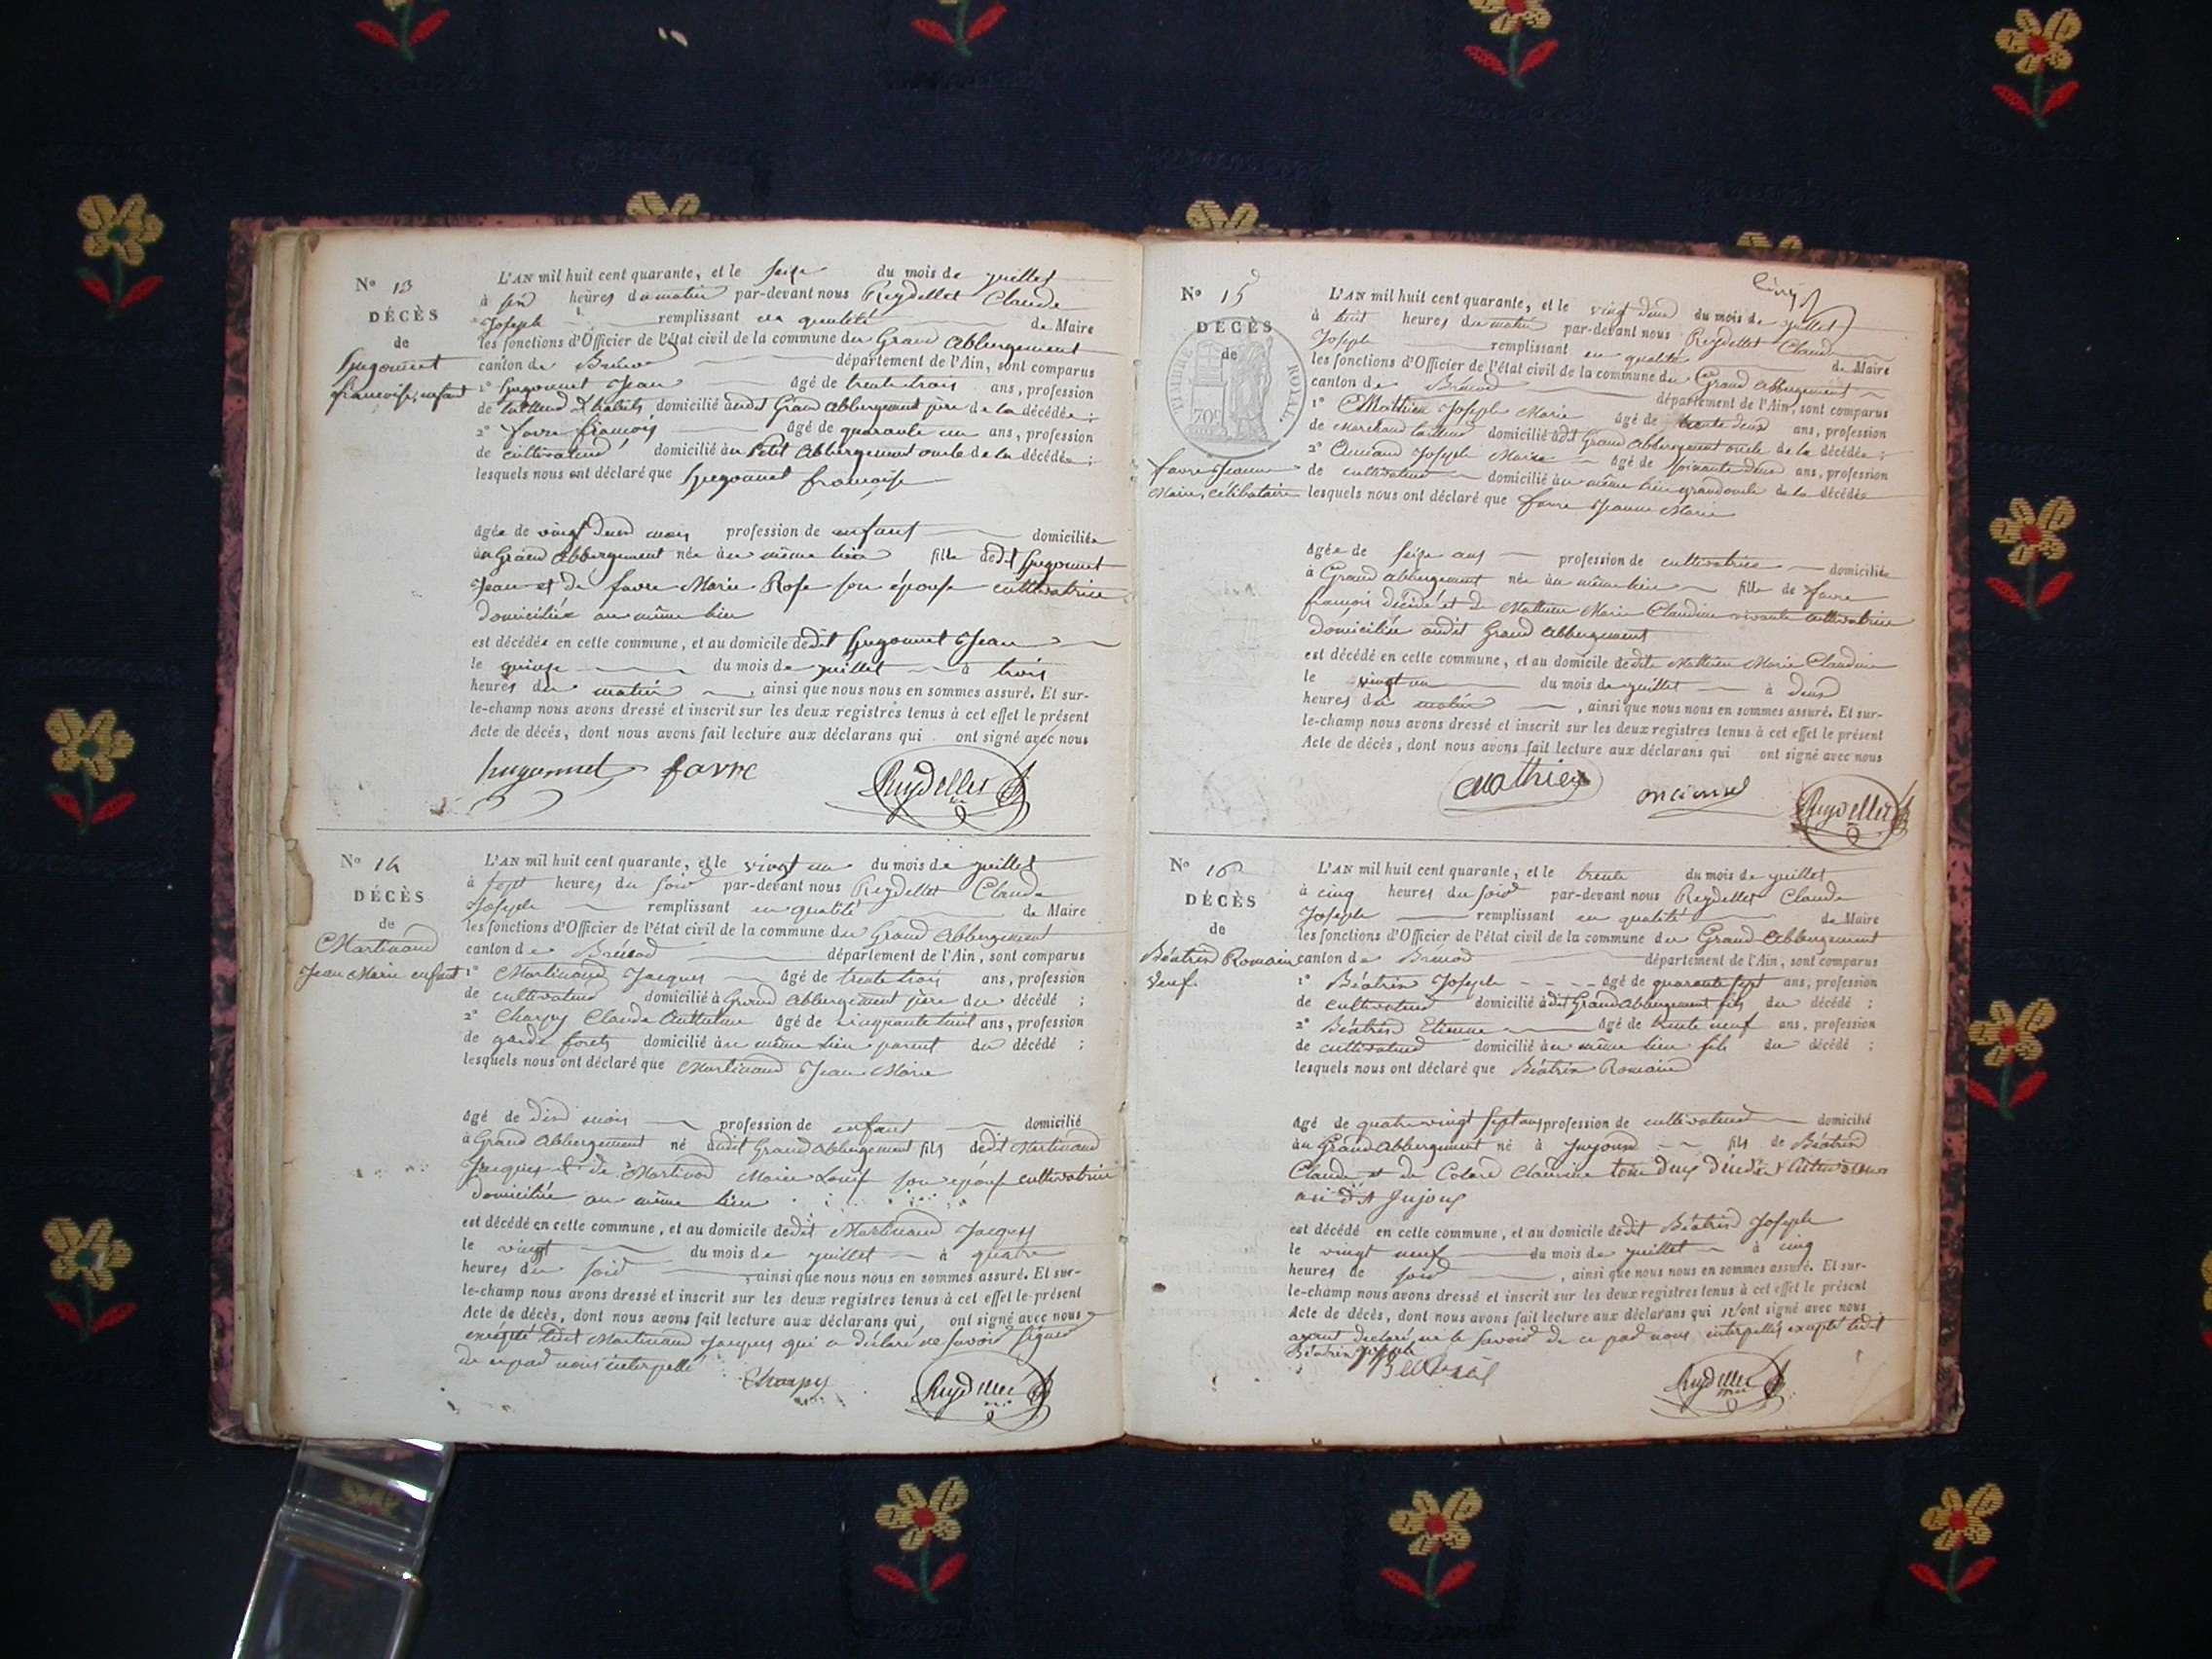 No 13
DÉCÈS
de
hugonnet
francoise, enfant
L'AN mil huit cent quarante, et le seize du mois de juillet
à heures du matin par-devant nous Reydellet Claude
Joseph remplissant en qualité de Maire
les fonctions d'Officier de l'état civil de la commune du Grand Abbergement
canton de Brénod département de l'Ain, sont comparus
1° hugonnet Jean âgé de trente trois ans, profession
de tailleur d'habits domicilié audit Grand Abbergement père de la décédée ;
2° favre françois âgé de quarante un ans, profession
de cultivateur domicilié au Petit Abbergement oncle de la décédée ;
lesquels nous ont déclaré que hugonnet francoise
âgée de vingt deux mois profession de enfant domiciliée
au Grand Abbergement née au même lieu fille dudit hugonnet
Jean et de favre Marie Rose son épouse cultivatrice
domiciliée au même lieu
est décédée en cette commune, et au domicile dudit hugonnet Jean
le quinze du mois de juillet à trois
heures du matin , ainsi que nous nous en sommes assuré. Et sur-
le-champ nous avons dressé et inscrit sur les deux registres tenus à cet effet le présent
Acte de décès, dont nous avons fait lecture aux déclarans qui ont signé avec nous
hugonnet favre Reydellet
No 14
DÉCÈS
de
Martinand
Jean Marie enfant
L'AN mil huit cent quarante, et le vingt un du mois de juillet
à sept heures du soir par-devant nous Reydellet Claude
Joseph remplissant en qualité de Maire
les fonctions d'Officier de l'état civil de la commune du Grand Abbergement
canton de Brénod département de l'Ain, sont comparus
1° Martinand Jacques âgé de trente trois ans, profession
de cultivateur domicilié à Grand Abbergement père du décédé ;
2° Charpy Claude Anthelme âgé de cinquante huit ans, profession
de garde forets domicilié au même lieu parent du décédé ;
lesquels nous ont déclaré que Martinand Jean Marie
âgé de dix mois profession de enfant domicilié
à Grand Abbergement né audit Grand Abbergement fils dudit Martinand
Jacques et de Martinod Marie Louise son épouse cultivatrice
domiciliée au même lieu
est décédé en cette commune, et au domicile dudit Martinand Jacques
le vingt du mois de juillet à quatre
heures du soir , ainsi que nous nous en sommes assuré. Et sur-
le-champ nous avons dressé et inscrit sur les deux registres tenus à cet effet le présent
Acte de décès, dont nous avons fait lecture aux déclarans qui, ont signé avec nous
excepté ledit Martinand Jacques qui a déclaré ne savoir signer
de ce par nous interpellé
Charpy Reydellet
No 15
DÉCÈS
de
TIMBRE ROYAL
70c
favre Jeanne
Marie, célibataire
L'AN mil huit cent quarante, et le vingt deux du mois de juillet
à huit heures du matin par-devant nous Reydellet Claude
Joseph remplissant en qualité de Maire
les fonctions d'Officier de l'état civil de la commune du Grand Abbergement
canton de Brénod département de l'Ain, sont comparus
1° Mathieu Joseph Marie âgé de trente deux ans, profession
de Marchand tailleur domicilié audit Grand Abbergement oncle de la décédée ;
2° Joseph Marie âgé de soixante deux ans, profession
de cultivateur domicilié au même lieu grand oncle de la décédée
lesquels nous ont déclaré que favre Jeanne Marie
âgée de seize ans profession de cultivatrice domiciliée
à Grand abbergement née au même lieu fille de favre
francois décédé et de Mathieu Marie Claudine vivante cultivatrice
domiciliée audit Grand Abbergement
est décédé en cette commune, et au domicile de dite Mathieu Marie Claudine
le vingt un du mois de juillet à deux
heures du matin , ainsi que nous nous en sommes assuré. Et sur-
le-champ nous avons dressé et inscrit sur les deux registres tenus à cet effet le présent
Acte de décès, dont nous avons fait lecture aux déclarans qui ont signé avec nous
Mathieu Reydellet
No 16
DÉCÈS
de
Béatrix Romain
veuf.
L'AN mil huit cent quarante, et le trente du mois de juillet
à cinq heures du soir par-devant nous Reydellet Claude
Joseph remplissant en qualité de Maire
les fonctions d'Officier de l'état civil de la commune du Grand Abbergement
canton de Brénod département de l'Ain, sont comparus
1° Béatrix Joseph âgé de quarante sept ans, profession
de cultivateur domicilié audit Grand Abbergement fils du décédé ;
2° Béatrix Etienne âgé de trente neuf ans, profession
de cultivateur domicilié au même lieu fils du décédé ;
lesquels nous ont déclaré que Béatrix Romain
âgé de quatre vingt sept ans profession de cultivateur domicilié
au Grand Abbergement né à fils de Béatrix
Claude et de Colard Claudine tous deux
est décédé en cette commune, et au domicile dudit Béatrix Joseph
le vingt neuf du mois de juillet à cinq
heures de soir , ainsi que nous nous en sommes assuré. Et sur-
le-champ nous avons dressé et inscrit sur les deux registres tenus à cet effet le présent
Acte de décès, dont nous avons fait lecture aux déclarans qui n'ont signé avec nous
ayant déclaré ne le savoir de ce par nous interpellés excepté ledit
Béatrix Joseph
Reydellet